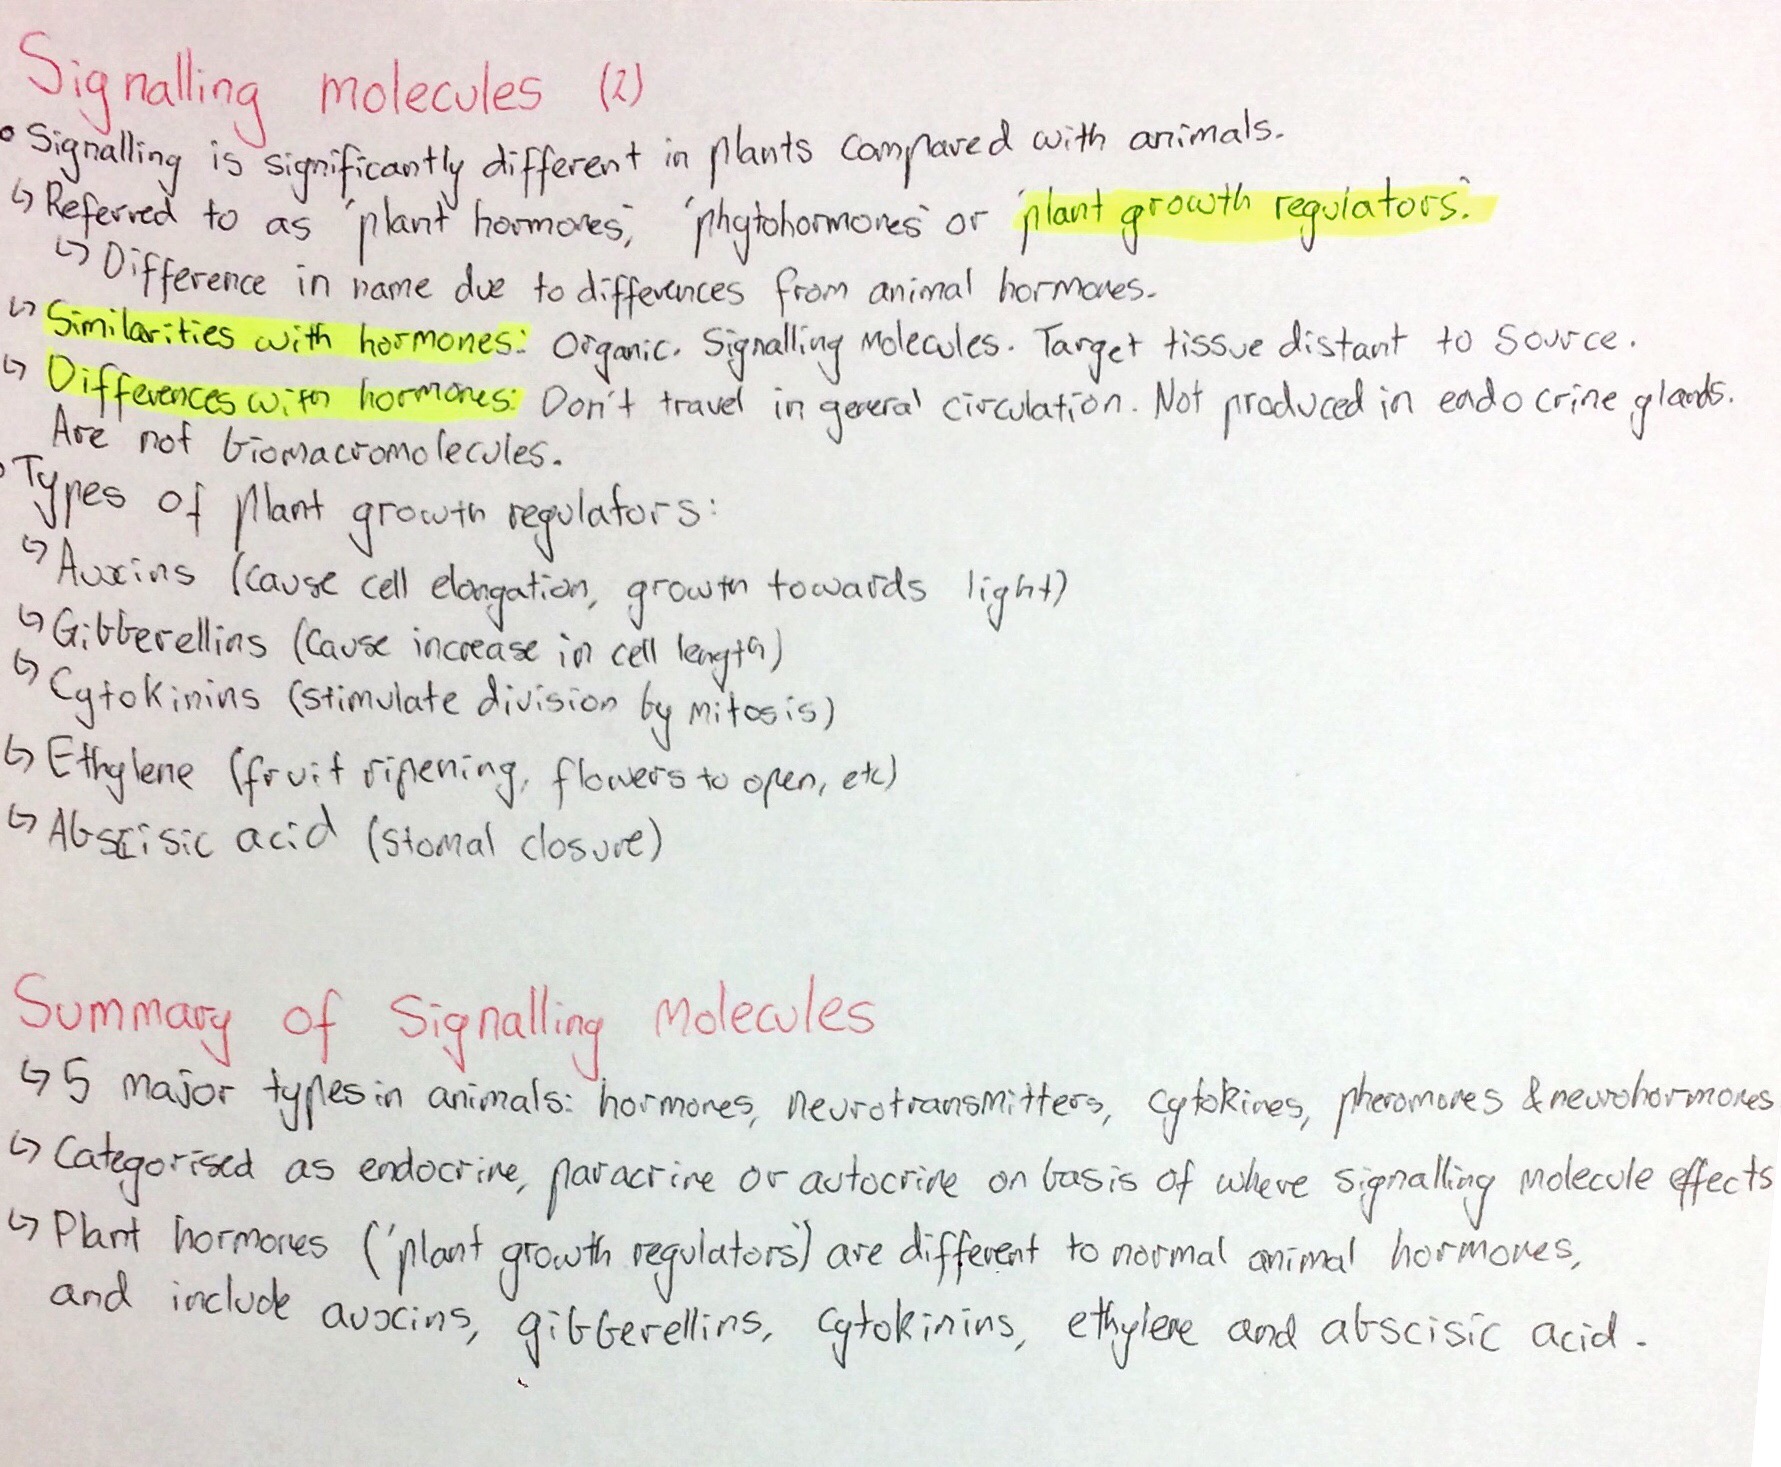 Signalling molecules (2)
• Signalling is significantly different in plants compared with animals.
↳ Referred to as 'plant hormones', 'phytohormones' or 'plant growth regulators'.
↳ Difference in name due to differences from animal hormones.
↳ Similarities with hormones: Organic. Signalling Molecules. Target tissue distant to source.
↳ Differences with hormones: Don't travel in general circulation. Not produced in endocrine glands.
Are not biomacromolecules.
• Types of plant growth regulators:
↳ Auxins (cause cell elongation, growth towards light)
↳ Gibberellins (cause increase in cell length)
↳ Cytokinins (stimulate division by mitosis)
↳ Ethylene (fruit ripening, flowers to open, etc)
↳ Abscisic acid (stomal closure)
Summary of Signalling Molecules
↳ 5 major types in animals: hormones, neurotransmitters, cytokines, pheromones & neurohormones
↳ Categorised as endocrine, paracrine or autocrine on basis of where signalling molecule effects
↳ Plant hormones ('plant growth regulators') are different to normal animal hormones,
and include auxins, gibberellins, cytokinins, ethylene and abscisic acid.